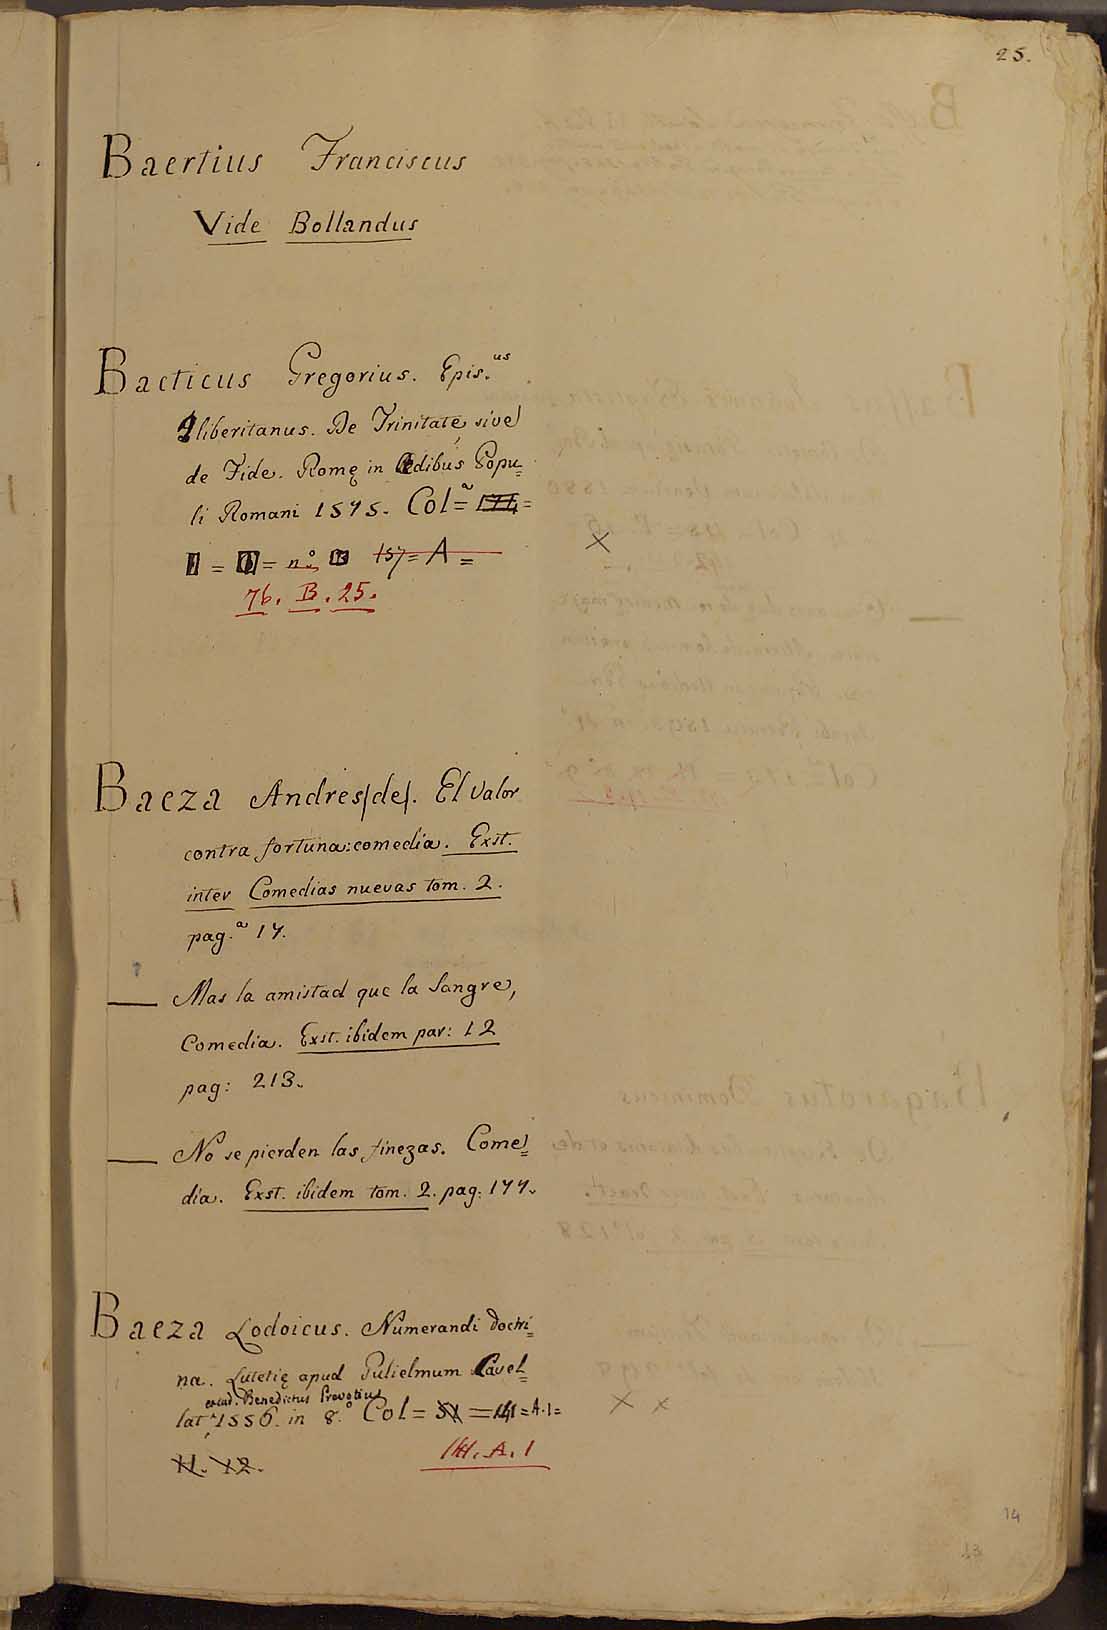 25.
Baertius Franciscus
Vide Bollandus
Baeticus Gregorius. Epis.us
Iliberitanus. De Trinitate, sive
de Fide. Romę in Ædibus Popu=
li Romani 1575. Col.a =
= = n.o 157 = A =
76. B. 25.
Baeza Andres (de). El valor
contra fortuna: comedia. Exst.
inter Comedias nuevas tom. 2.
pag.a 17.
— Mas la amistad que la Sangre,
Comedia. Exst. ibidem par: 12
pag: 213.
— No se pierden las finezas. Come=
dia. Exst. ibidem tom. 2. pag: 177.
Baeza Lodoicus. Numerandi Doctri=
na. Lutetię apud Gulielmum Cavel=
excud. Benedictus Prevotius
lat 1556. in 8.o Col = 51 = 141 = A. 1 =
11. 12.
141. A. 1
14
13